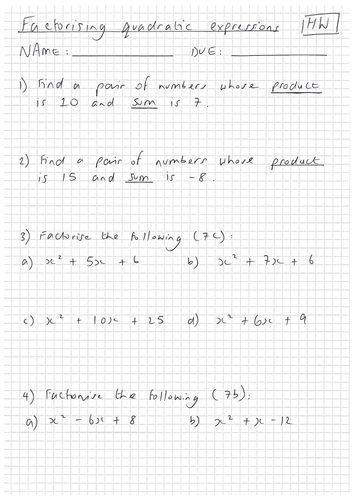 Factorising quadratic expressions HW
NAME: DUE:
1) Find a pair of numbers whose product
is 10 and sum is 7.
2) Find a pair of numbers whose product
is 15 and sum is -8.
3) Factorise the following (7c):
a) x² + 5x + 6 b) x² + 7x + 6
c) x² + 10x + 25 d) x² + 6x + 9
4) Factorise the following (7b):
a) x² - 6x + 8 b) x² + x - 12